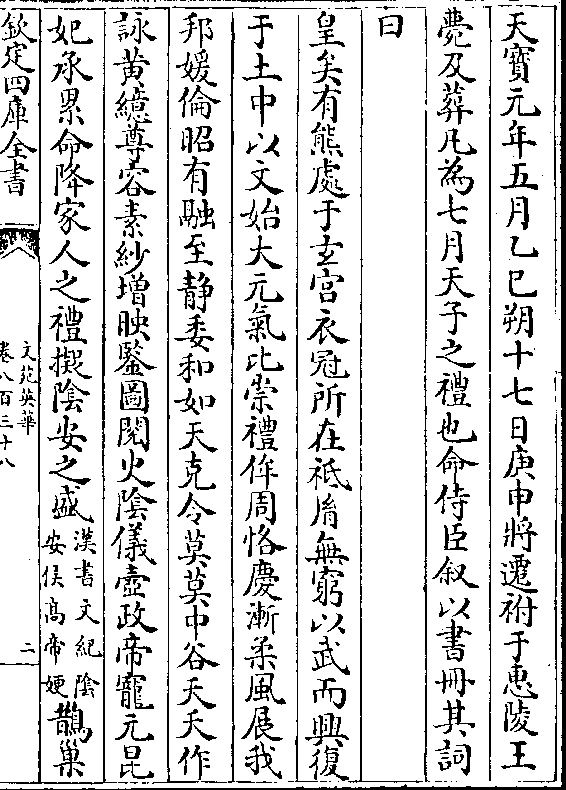 天寳元年五月乙巳朔十七日庚申將遷祔于惠陵王
薨及葬凡為七月天子之禮也命侍臣叙以書冊其詞
曰
皇矣有熊處于玄宫衣冠所在祗𦙍無窮以武而興復
于土中以文始大元氣比崇禮侔周恪慶漸柔風展我
邦媛倫昭有融至静委和如天克令莫莫中谷夭夭作
詠黄繶尊容素紗增映鑒圖閱火陰儀壼政帝寵元昆
妃承累命降家人之禮擬陰安之盛漢書文紀陰
安侯髙帝㛐鵲巢
欽定四庫全書
文苑英華
卷八百三十八
二